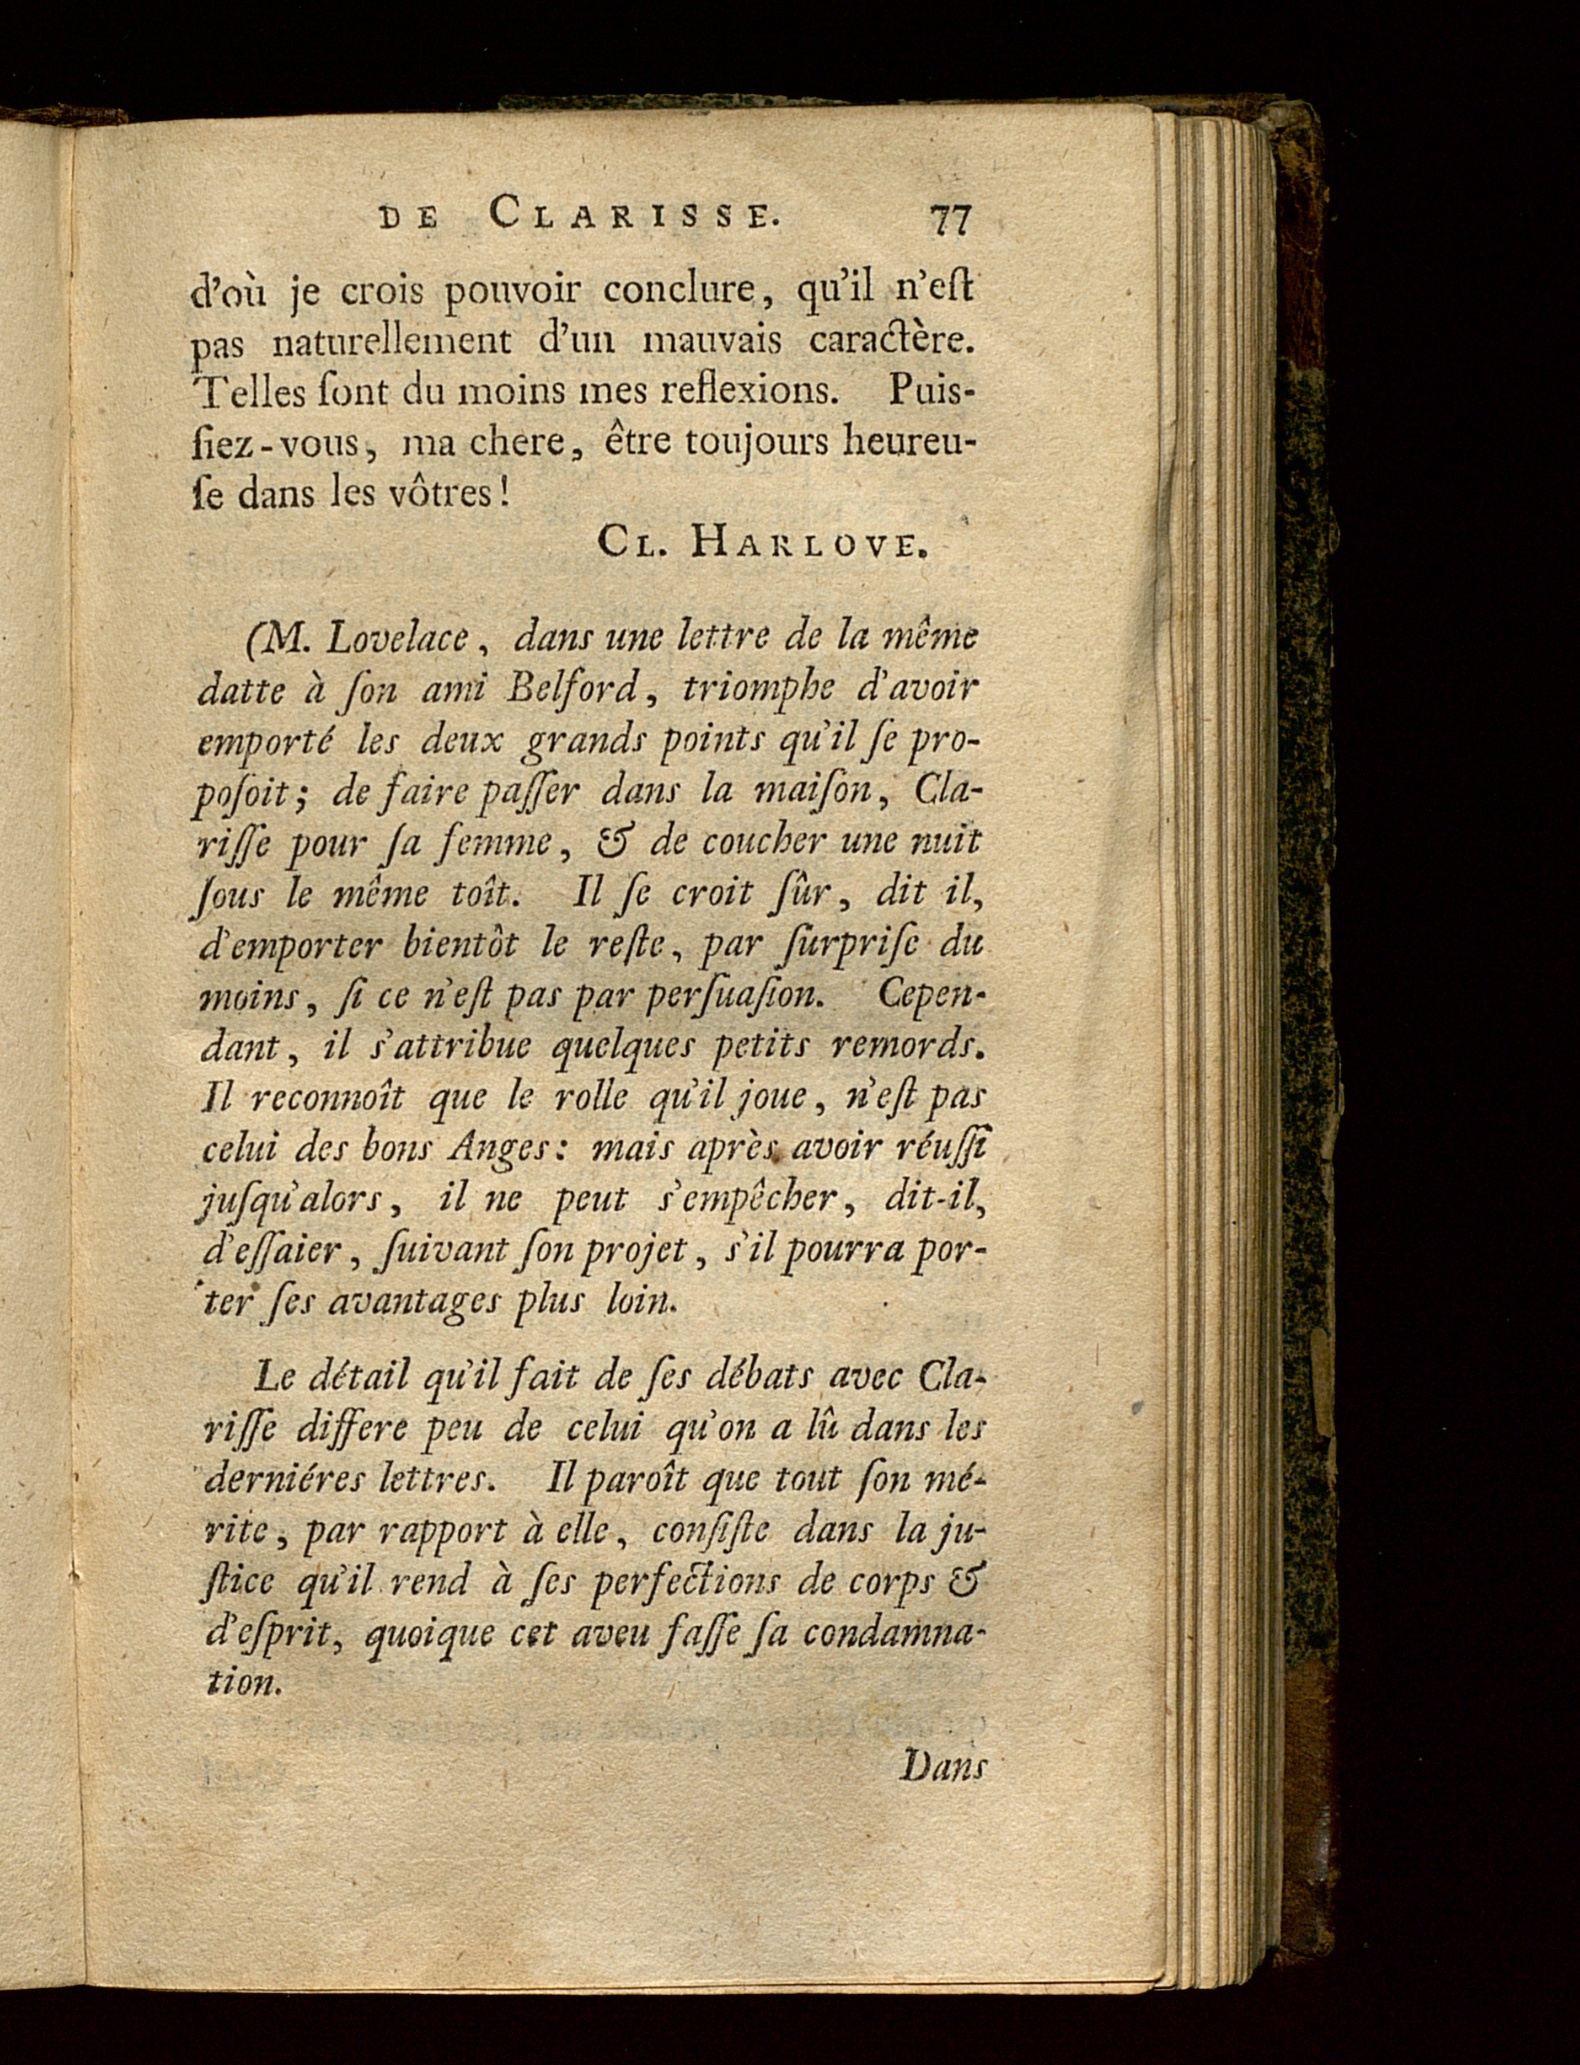 DE CLARISSE. 77
d'où je crois pouvoir conclure, qu'il n'eſt
pas naturellement d'un mauvais caractère.
Telles ſont du moins mes reflexions. Puis-
ſiez-vous, ma chere, être toujours heureu-
ſe dans les vôtres!
CL. HARLOVE.
(M. Lovelace, dans une lettre de la même
datte à ſon ami Belford, triomphe d'avoir
emporté les deux grands points qu'il ſe pro-
poſoit; de faire paſſer dans la maiſon, Cla-
riſſe pour ſa femme, & de coucher une nuit
ſous le même toît. Il ſe croit ſûr, dit il,
d'emporter bientôt le reſte, par ſurpriſe du
moins, ſi ce n'eſt pas par perſuaſion. Cepen-
dant, il s'attribue quelques petits remords.
Il reconnoît que le rolle qu'il joue, n'eſt pas
celui des bons Anges: mais après avoir réuſſi
juſqu'alors, il ne peut s'empêcher, dit-il,
d'eſſaier, ſuivant ſon projet, s'il pourra por-
ter ſes avantages plus loin.
Le détail qu'il fait de ſes débats avec Cla-
riſſe differe peu de celui qu'on a lû dans les
derniéres lettres. Il paroît que tout ſon mé-
rite, par rapport à elle, conſiſte dans la ju-
ſtice qu'il rend à ſes perfections de corps &
d'eſprit, quoique cet aveu faſſe ſa condamna-
tion.
Dans